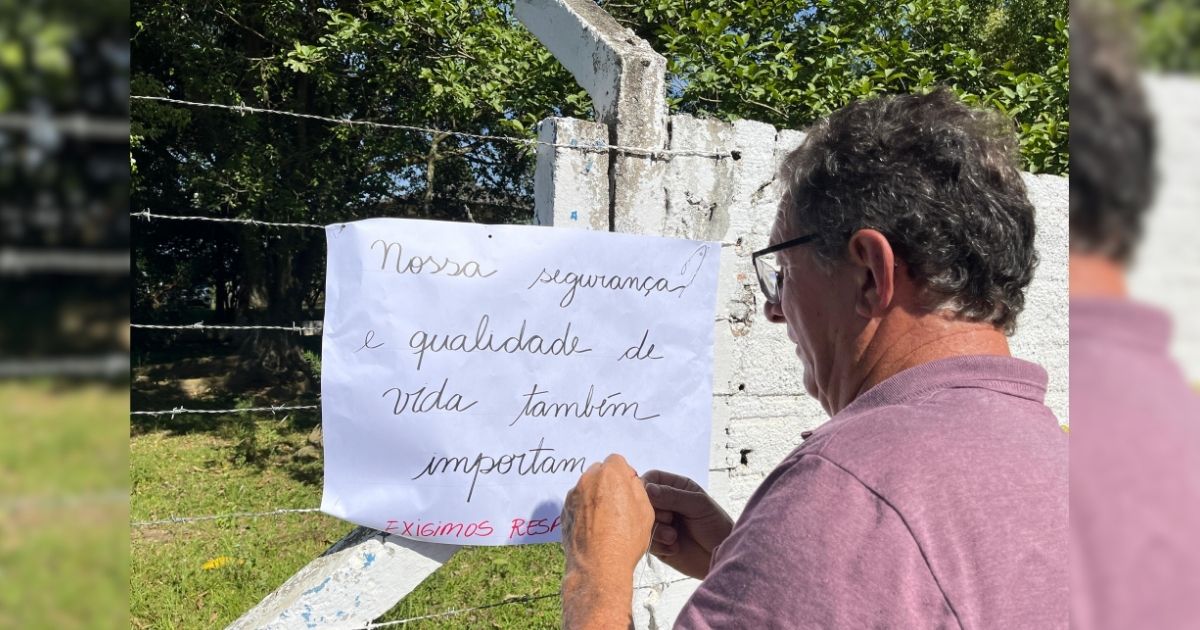 Nossa segurança
e qualidade de
vida também
importam
EXIGIMOS